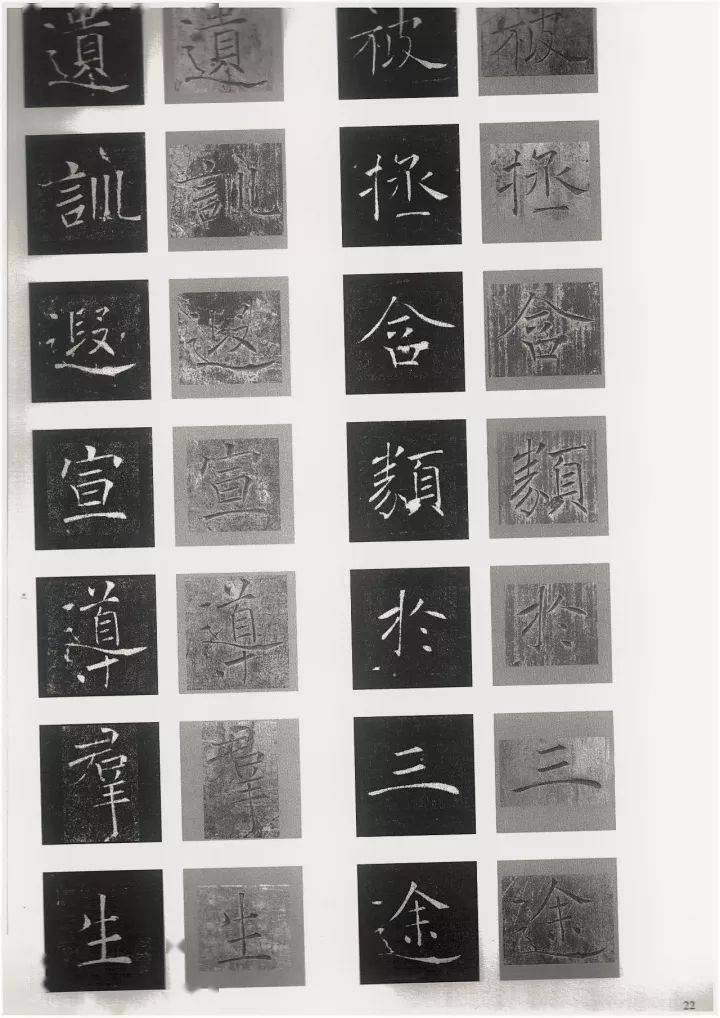 被拯含類於三途
被拯含類於三途
遺訓遐宣導羣生
遺訓遐宣導羣生
22